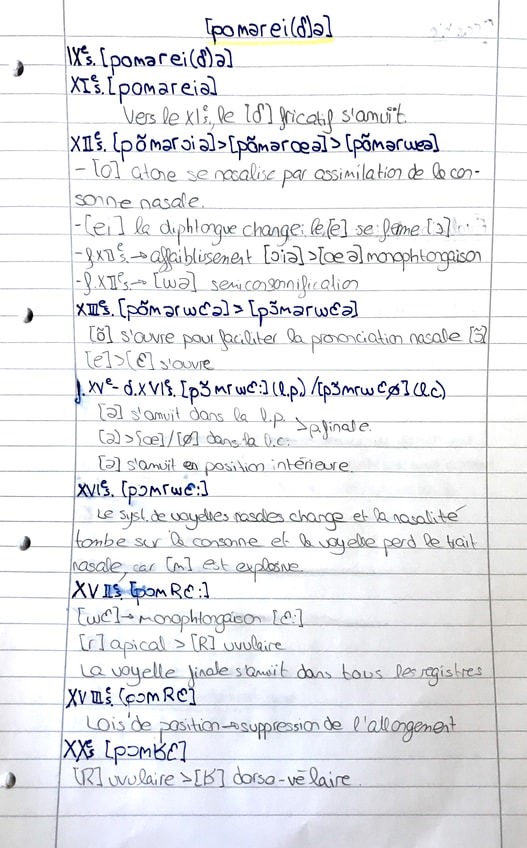 [pomarei(ẟ)ə]
IXᵉs. [pomarei(ẟ)ə]
XIᵉs. [pomareiə]
Vers le XIᵉs, le [ẟ] fricatif s'amuït.
XIIᵉs. [põmərɔiə]>[põməroeə]>[põmərweə]
- [o] atone se nasalise par assimilation de la con-
sonne nasale.
- [ei] la diphtongue change: le [e] se ferme [ɔ]
- f.XIIᵉs → affaiblissement [ɔiə]>[oeə] monophtongaison
- f.XIIᵉs → [wə] semiconsonnification
XIIIᵉs. [põmərwɛə]>[pɔ̃mərwɛə]
[õ] s'ouvre pour faciliter la prononciation nasale [ɔ̃]
[e]>[ɛ] s'ouvre
f. XVᵉ - d.XVIᵉs. [pɔ̃mrwɛ:] (l.p) / [pɔ̃mrwɛø] (l.c)
[ə] s'amuït dans la l.p. >p.finale.
[ə]>[œ]/[ø] dans la l.c.
[ə] s'amuït en position intérieure.
XVIᵉs. [pɔmrwɛ:]
Le syst. de voyelles nasales change et la nasalité
tombe sur la consonne et la voyelle perd le trait
nasale, car [m] est explosive.
XVIIᵉs. [pɔmRɛ:]
[wɛ] → monophtongaison [ɛ:]
[r] apical > [R] uvulaire
La voyelle finale s'amuït dans tous les registres
XVIIIᵉs. [pɔmRɛ]
Lois de position → suppression de l'allongement
XXᵉs [pɔmʁɛ]
[R] uvulaire > [ʁ] dorso-vélaire.